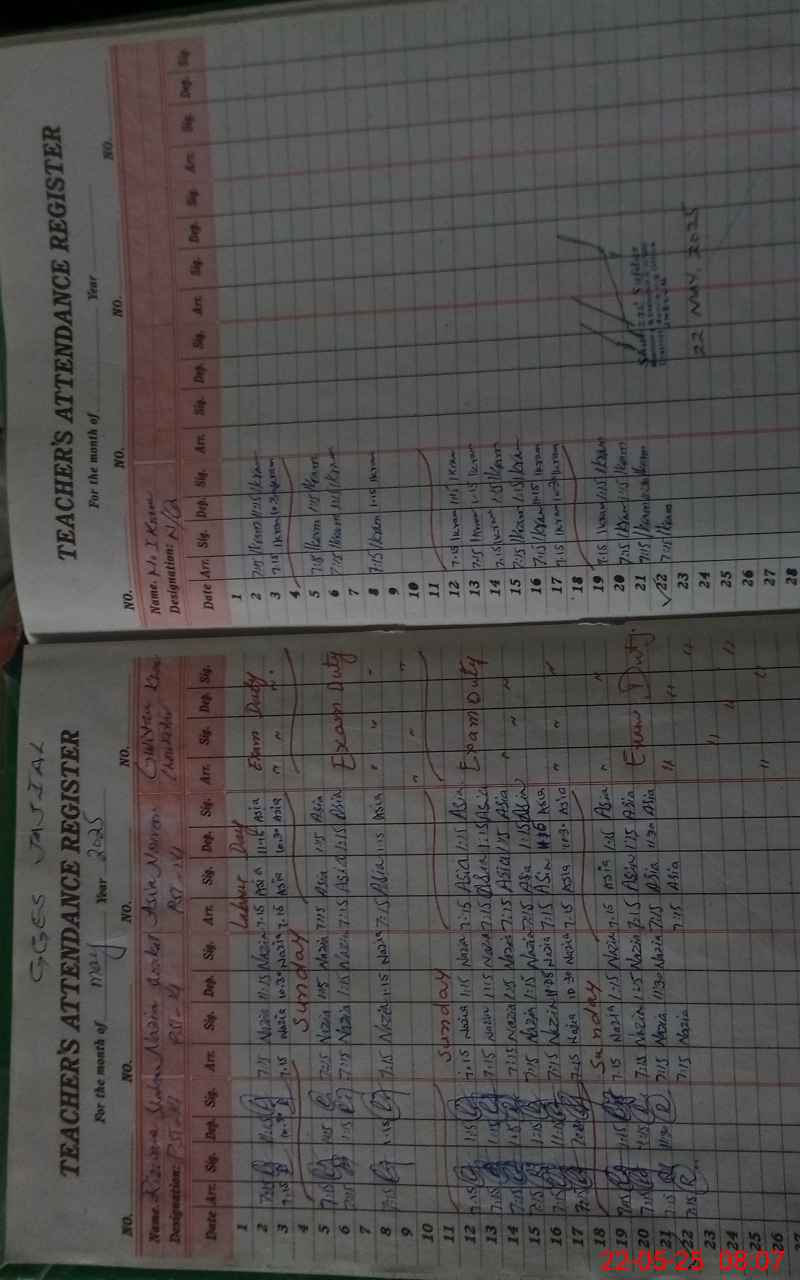 GGES JASIAL
TEACHER'S ATTENDANCE REGISTER
For the month of May Year 2025
NO. NO. NO. NO.
Name. Nazia Asia Noreen
Designation: PST-14 PST-14
Date Arr. Sig. Dep. Sig. Arr. Sig. Dep. Sig. Arr. Sig. Dep. Sig. Arr. Sig. Dep. Sig.
1 Labour Day
2 7:15 11:15 7:15 Nazia 11:15 Nazia 7:15 Asia 11:15 Asia Exam Duty
3 7:15 10:30 7:15 Nazia 10:30 Nazia 7:15 Asia 10:30 Asia " "
4 Sunday
5 7:15 1:15 7:15 Nazia 1:15 Nazia 7:15 Asia 1:15 Asia
6 7:15 1:15 7:15 Nazia 1:15 Nazia 7:15 Asia 1:15 Asia Exam Duty
7
8 7:15 1:15 7:15 Nazia 1:15 Nazia 7:15 Asia 1:15 Asia " " "
9
10 " "
11 Sunday
12 7:15 1:15 7:15 Nazia 1:15 Nazia 7:15 Asia 1:15 Asia Exam Duty
13 7:15 1:15 7:15 Nazia 1:15 Nazia 7:15 Asia 1:15 Asia
14 7:15 1:15 7:15 Nazia 1:15 Nazia 7:15 Asia 1:15 Asia " "
15 7:15 1:15 7:15 Nazia 1:15 Nazia 7:15 Asia 1:15 Asia
16 7:15 7:15 Nazia Nazia 7:15 Asia Asia " " "
17 7:15 7:15 Nazia 10:30 Nazia 7:15 Asia 10:30 Asia
18 Sunday
19 7:15 1:15 7:15 Nazia 1:15 Nazia 7:15 Asia 1:15 Asia
20 7:15 1:15 7:15 Nazia 1:15 Nazia 7:15 Asia 1:15 Asia Exam Duty
21 7:15 11:30 7:15 Nazia 11:30 Nazia 7:15 Asia 11:30 Asia " "
22 7:15 7:15 Nazia 7:15 Asia
23
24
25
26
TEACHER'S ATTENDANCE REGISTER
For the month of Year
NO. NO. NO. NO.
Name. Ikram
Designation: N/Q
Date Arr. Sig. Dep. Sig. Arr. Sig. Dep. Sig. Arr. Sig. Dep. Sig. Arr. Sig. Dep. Sig.
1
2 7:15 Ikram 11:15 Ikram
3 7:15 Ikram 10:30 Ikram
4
5 7:15 Ikram 1:15 Ikram
6 7:15 Ikram 1:15 Ikram
7
8 7:15 Ikram 1:15 Ikram
9
10
11
12 7:15 Ikram 1:15 Ikram
13 7:15 Ikram 1:15 Ikram
14 7:15 Ikram 1:15 Ikram
15 7:15 Ikram 1:15 Ikram
16 7:15 Ikram 11:15 Ikram
17 7:15 Ikram 10:30 Ikram
18
19 7:15 Ikram 1:15 Ikram
20 7:15 Ikram 1:15 Ikram
21 7:15 Ikram 11:30 Ikram
22 7:15 Ikram
23
24
25
26
27
28
22 MAY 2025
22-05-25 08:07